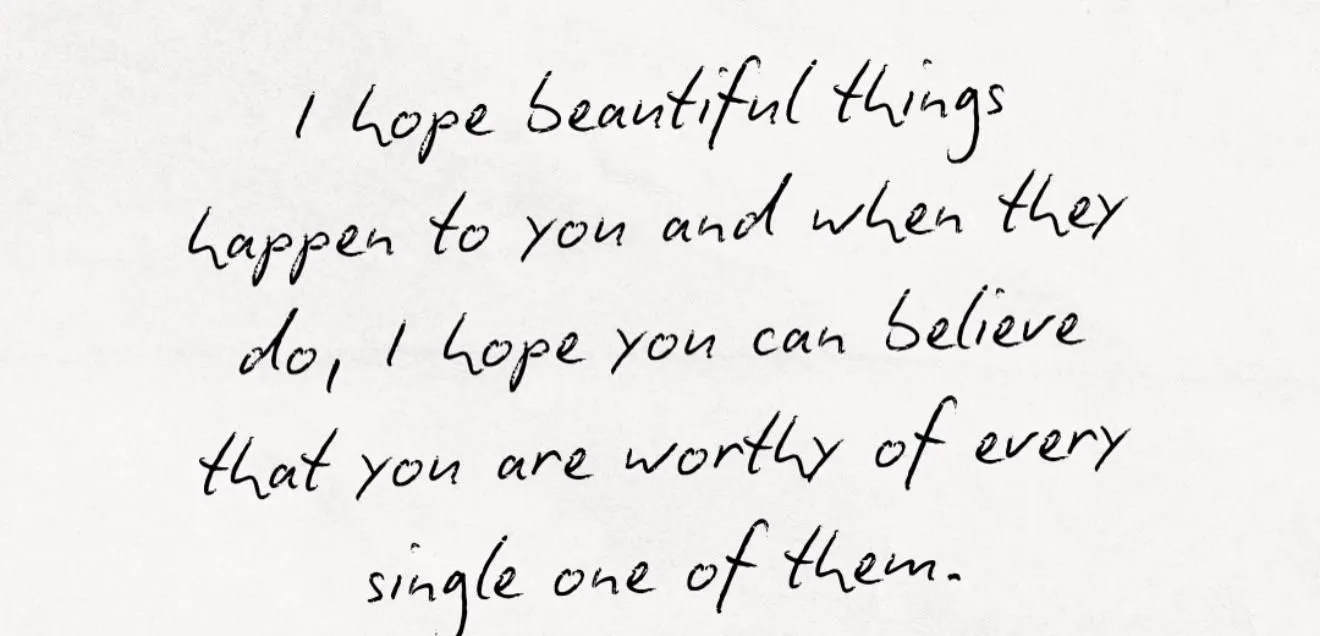 I hope beautiful things
happen to you and when they
do, I hope you can believe
that you are worthy of every
single one of them.